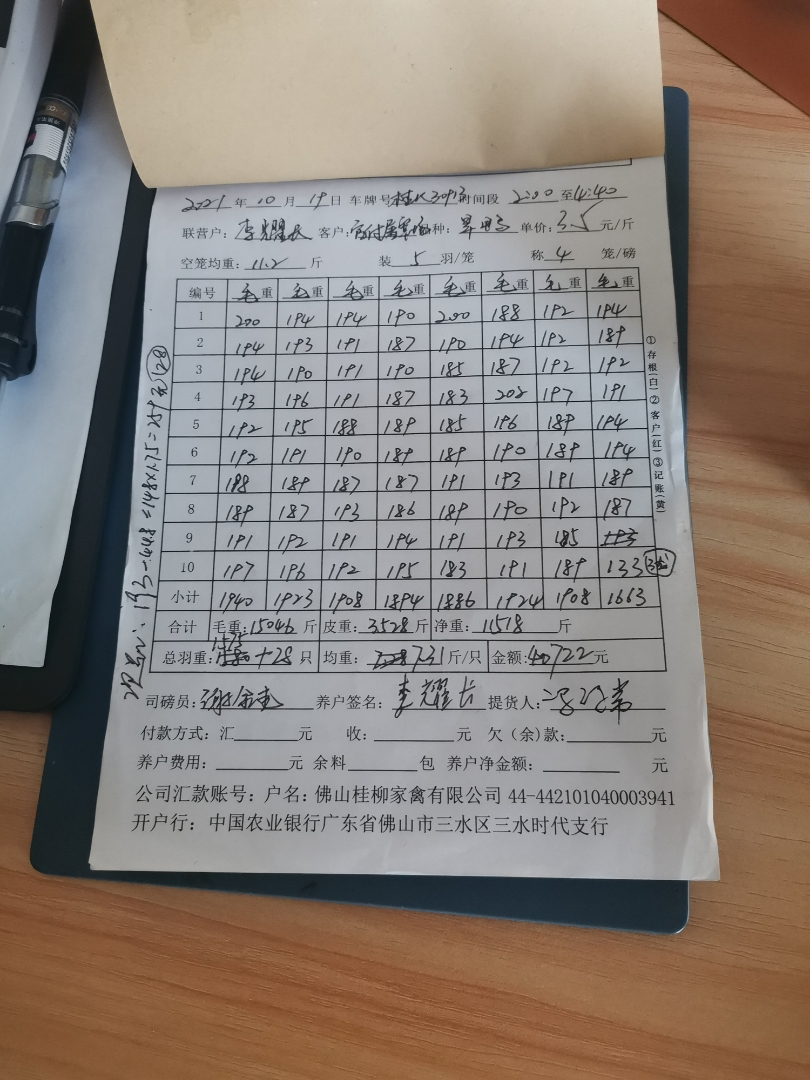 2021年10月19日 车牌号 时间段 2:00至4:40
联营户：李耀长 客户： 种： 单价：3.5元/斤
空笼均重：11.2斤 装5羽/笼 称4笼/磅
编号 毛重 毛重 毛重 毛重 毛重 毛重 毛重 毛重
1 200 194 194 190 200 188 192 194
2 194 193 191 187 190 194 192 189
3 194 190 191 190 185 187 192 192
4 193 196 191 187 183 202 197 191
5 192 195 188 189 185 196 189 194
6 192 191 190 189 189 190 189 194
7 188 189 187 187 191 193 191 189
8 189 187 193 186 189 190 192 187
9 191 192 191 194 191 193 185 193
10 197 196 192 195 183 191 189 133
小计 1940 1923 1908 1894 1886 1924 1908 1663
合计 毛重：15046斤 皮重：3528斤 净重：11518斤
1575
总羽重：1580+28只 均重：7.31斤/只 金额：40722元
司磅员： 养户签名：李耀长 提货人：
付款方式：汇 元 收： 元 欠（余）款： 元
养户费用： 元 余料 包 养户净金额： 元
公司汇款账号：户名：佛山桂柳家禽有限公司 44-442101040003941
开户行：中国农业银行广东省佛山市三水区三水时代支行
①存根(白)②客户(红)③记账(黄)
193-44.8=148×1.75=259元 128